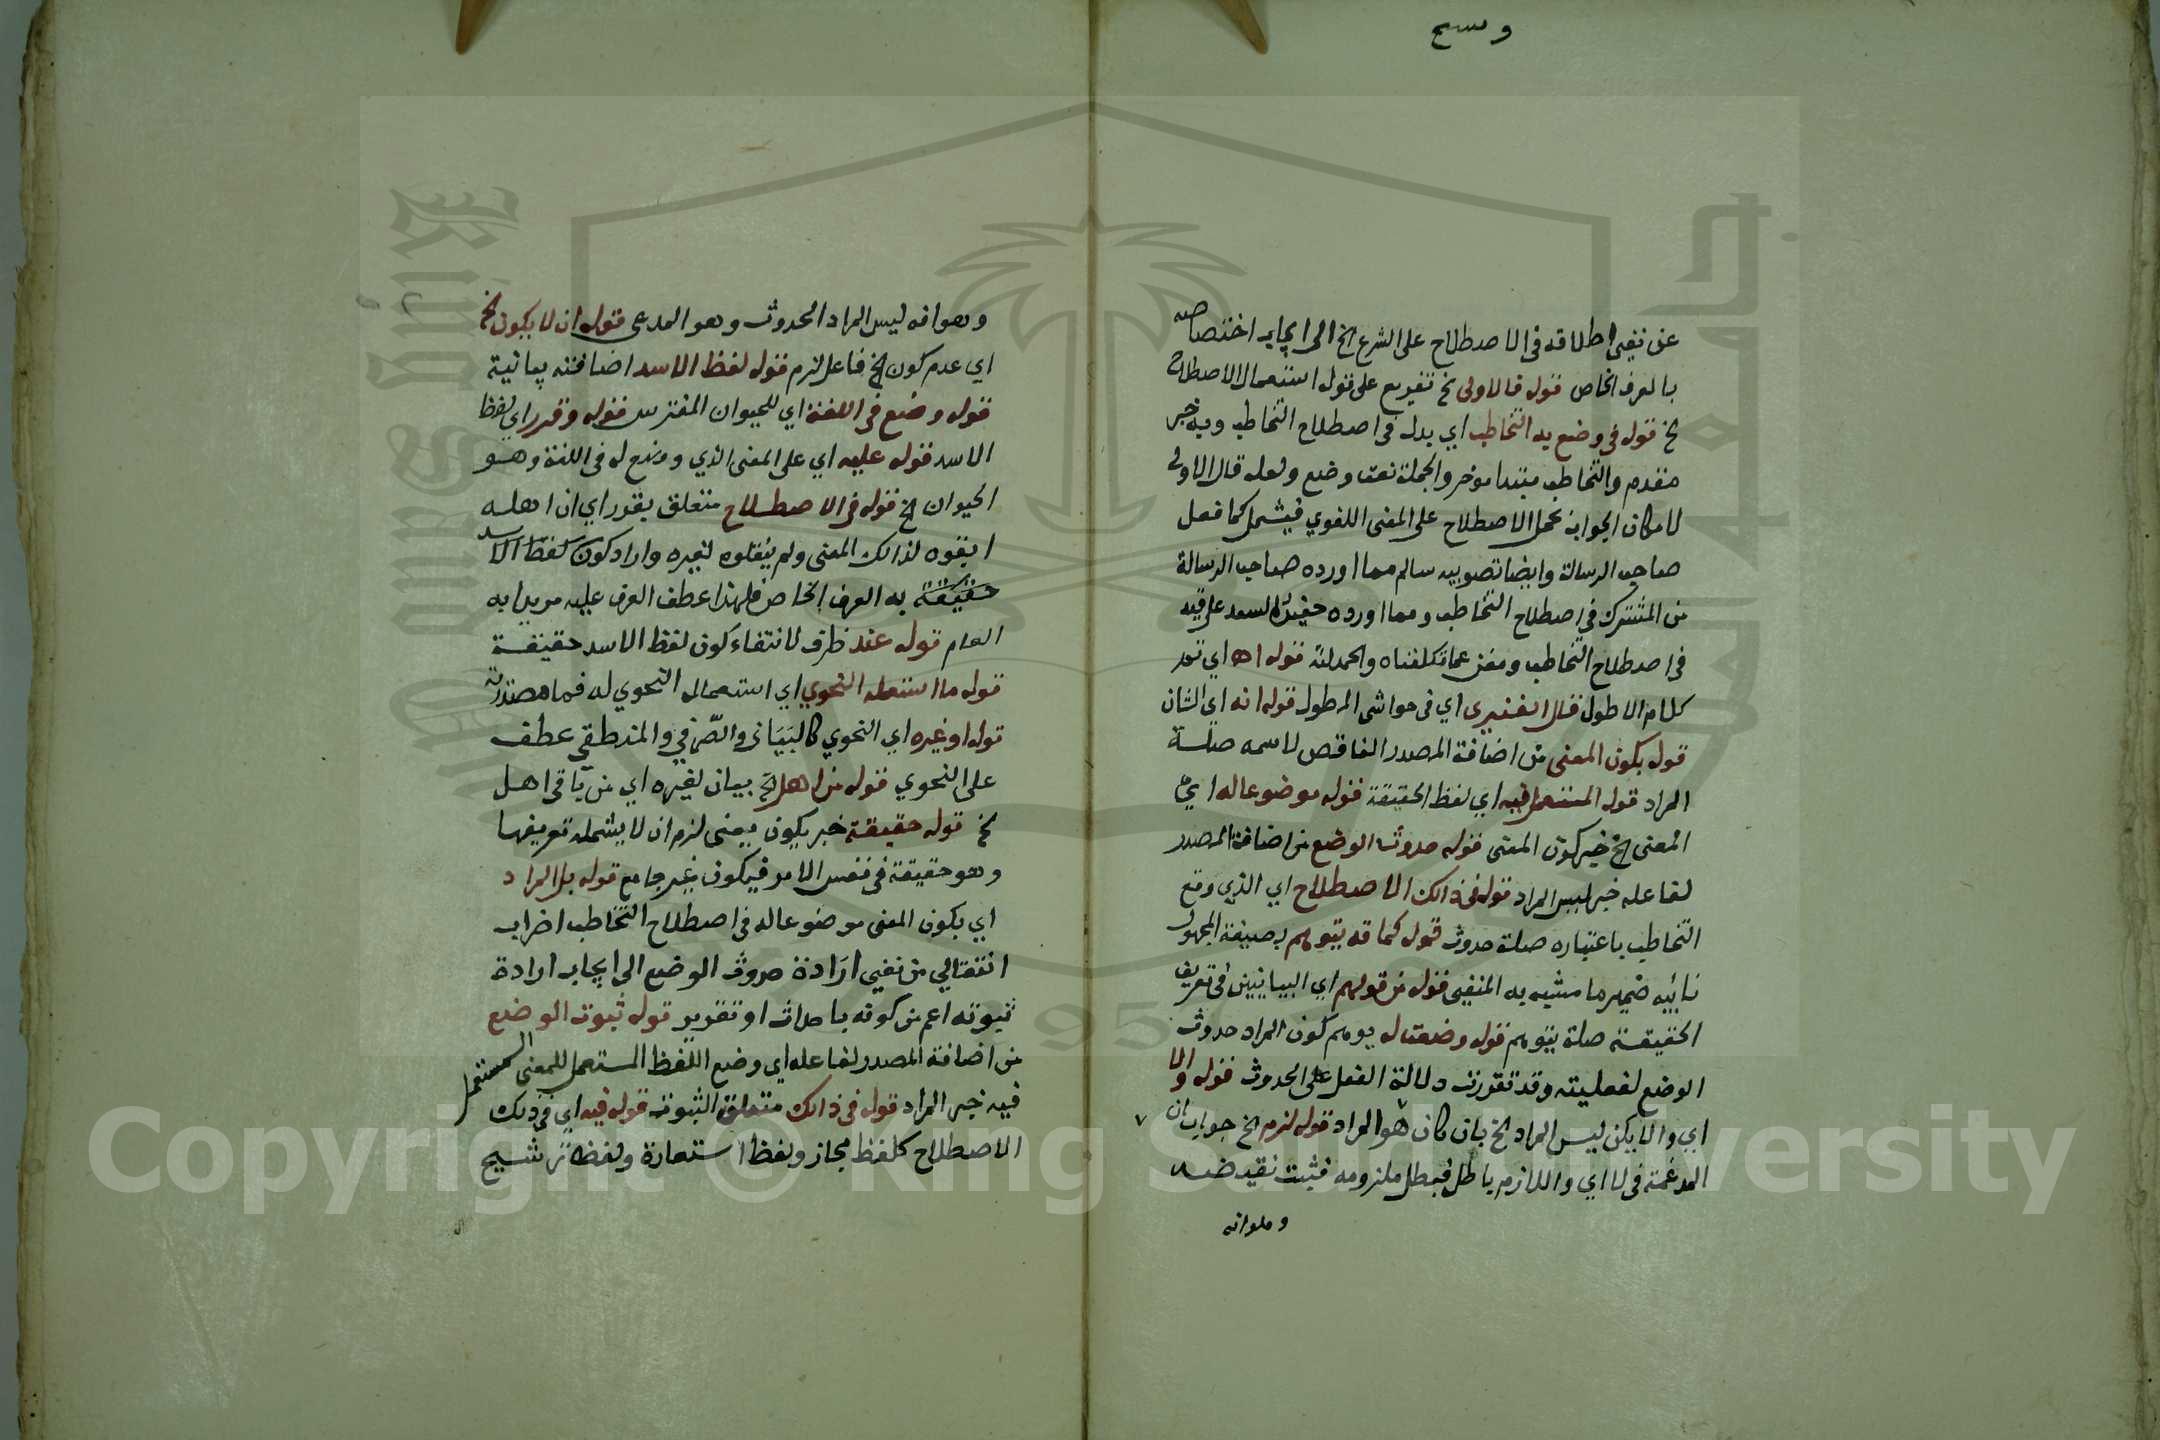 وسح
عن نفي اطلاقه في الاصطلاح على الشرع الخ الى ايجاب اختصاصه
بالعرف الخاص قوله فالاولى الخ تفريع على قوله استعمال الاصطلاح
الخ قوله في وضع به التخاطب اي بدل في اصطلاح التخاطب وبه خبر
مقدم والتخاطب مبتدا موخر والجملة نعت وضع ولعله قال الاولى
لامكان الجواب بحمل الاصطلاح على المعنى اللغوي فيشمل كما فعل
صاحب الرسالة وايضا تصويبه سالم مما اورده صاحب الرسالة
من المشترك في اصطلاح التخاطب ومما اورده حفيد السعد على قيد
في اصطلاح التخاطب ومغن عما تكلفناه والحمد لله قوله اه اي
كلام الاطول قال الفنيرى اي في حواشى المطول قوله انه اي الشان
قوله بكون المعنى من اضافة المصدر الناقص لاسمه صلة
المراد قوله المستعمل فيه اي لفظ الحقيقة قوله موضوعا له اي
المعنى الخ خبر كون المعنى قوله حدوث الوضع من اضافة المصدر
لفاعله خبر ليس المراد قوله في ذالك الاصطلاح اي الذي وقع
التخاطب باعتباره صلة حدوث قوله كما قد يتوهم بصيغة المجهول
نائبه ضمير ما مشبه به المنفي قوله من قولهم اي البيانيين في تعريف
الحقيقة صلة يتوهم قوله وضعت له يوهم كون المراد حدوث
الوضع لفعليته وقد تقررت دلالة الفعل على الحدوث قوله والا
اي والا يكن ليس المراد الخ بان كان هو المراد قوله لزم الخ جواب ان
المدغمة في لا اي واللازم باطل فبطل ملزومه فثبت نقيضه
وهوانه
وهو انه ليس المراد الحدوث وهو المدعى قوله ان لا يكون الخ
اي عدم كون الخ فاعل لزم قوله لفظ الاسد اضافته بيانية
قوله وضع في اللغة اي للحيوان المفترس قوله وقرر اي لفظ
الاسد قوله عليه اي على المعنى الذي وضع له في اللغة وهو
الحيوان الخ قوله في الاصطلاح متعلق بقرر اي ان اهله
ابقوه لذالك المعنى ولم ينقلوه لغيره واراد كون لفظ الاسد
حقيقة به العرف الخاص فلهذا عطف العرف عليه مريدا به
العام قوله عند ظرف لانتفاء كون لفظ الاسد حقيقة
قوله ما استعمله النحوي اي استعمال النحوي له فما مصدرية
قوله او غيره اي النحوي كالبياني والصرفي والمنطقي عطف
على النحوي قوله من اهل الخ بيان لغيره اي من باقي اهل
الخ قوله حقيقة خبر يكون يعنى لزم ان لا يشمله تعريفها
وهو حقيقة في نفس الامر فيكون غير جامع قوله بل المراد
اي بكون المعنى موضوعا له في اصطلاح التخاطب اضراب
انتقالي من نفي ارادة حدوث الوضع الى ايجاب ارادة
ثبوته اعم من كونه باحداث او تقرير قوله ثبوت الوضع
من اضافة المصدر لفاعله اي وضع اللفظ المستعمل للمعنى المستعمل
فيه خبر المراد قوله في ذالك متعلق الثبوت قوله فيه اي في ذلك
الاصطلاح كلفظ مجاز ولفظ استعارة ولفظ ترشيح